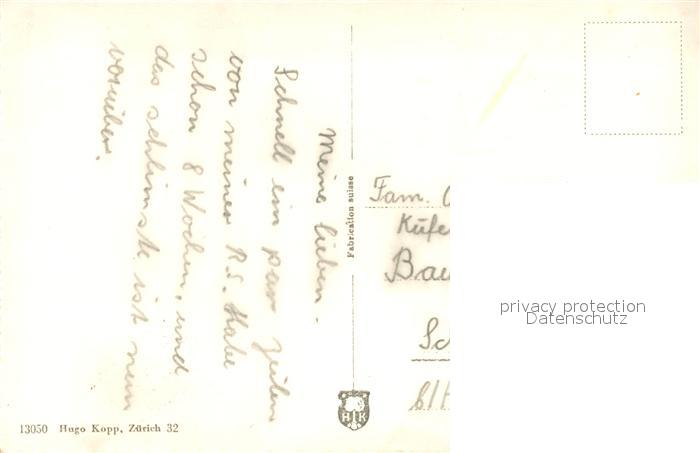 Meine lieben.
Schnell ein par Zeilen
von meiner R.S. Habe
schon 8 Wochen, und
das schlimste ist nun
vorüber.
Fabrication suisse
Fam.
Küfe
Bau
Sc
privacy protection
Datenschutz
HK
13050 Hugo Kopp, Zürich 32